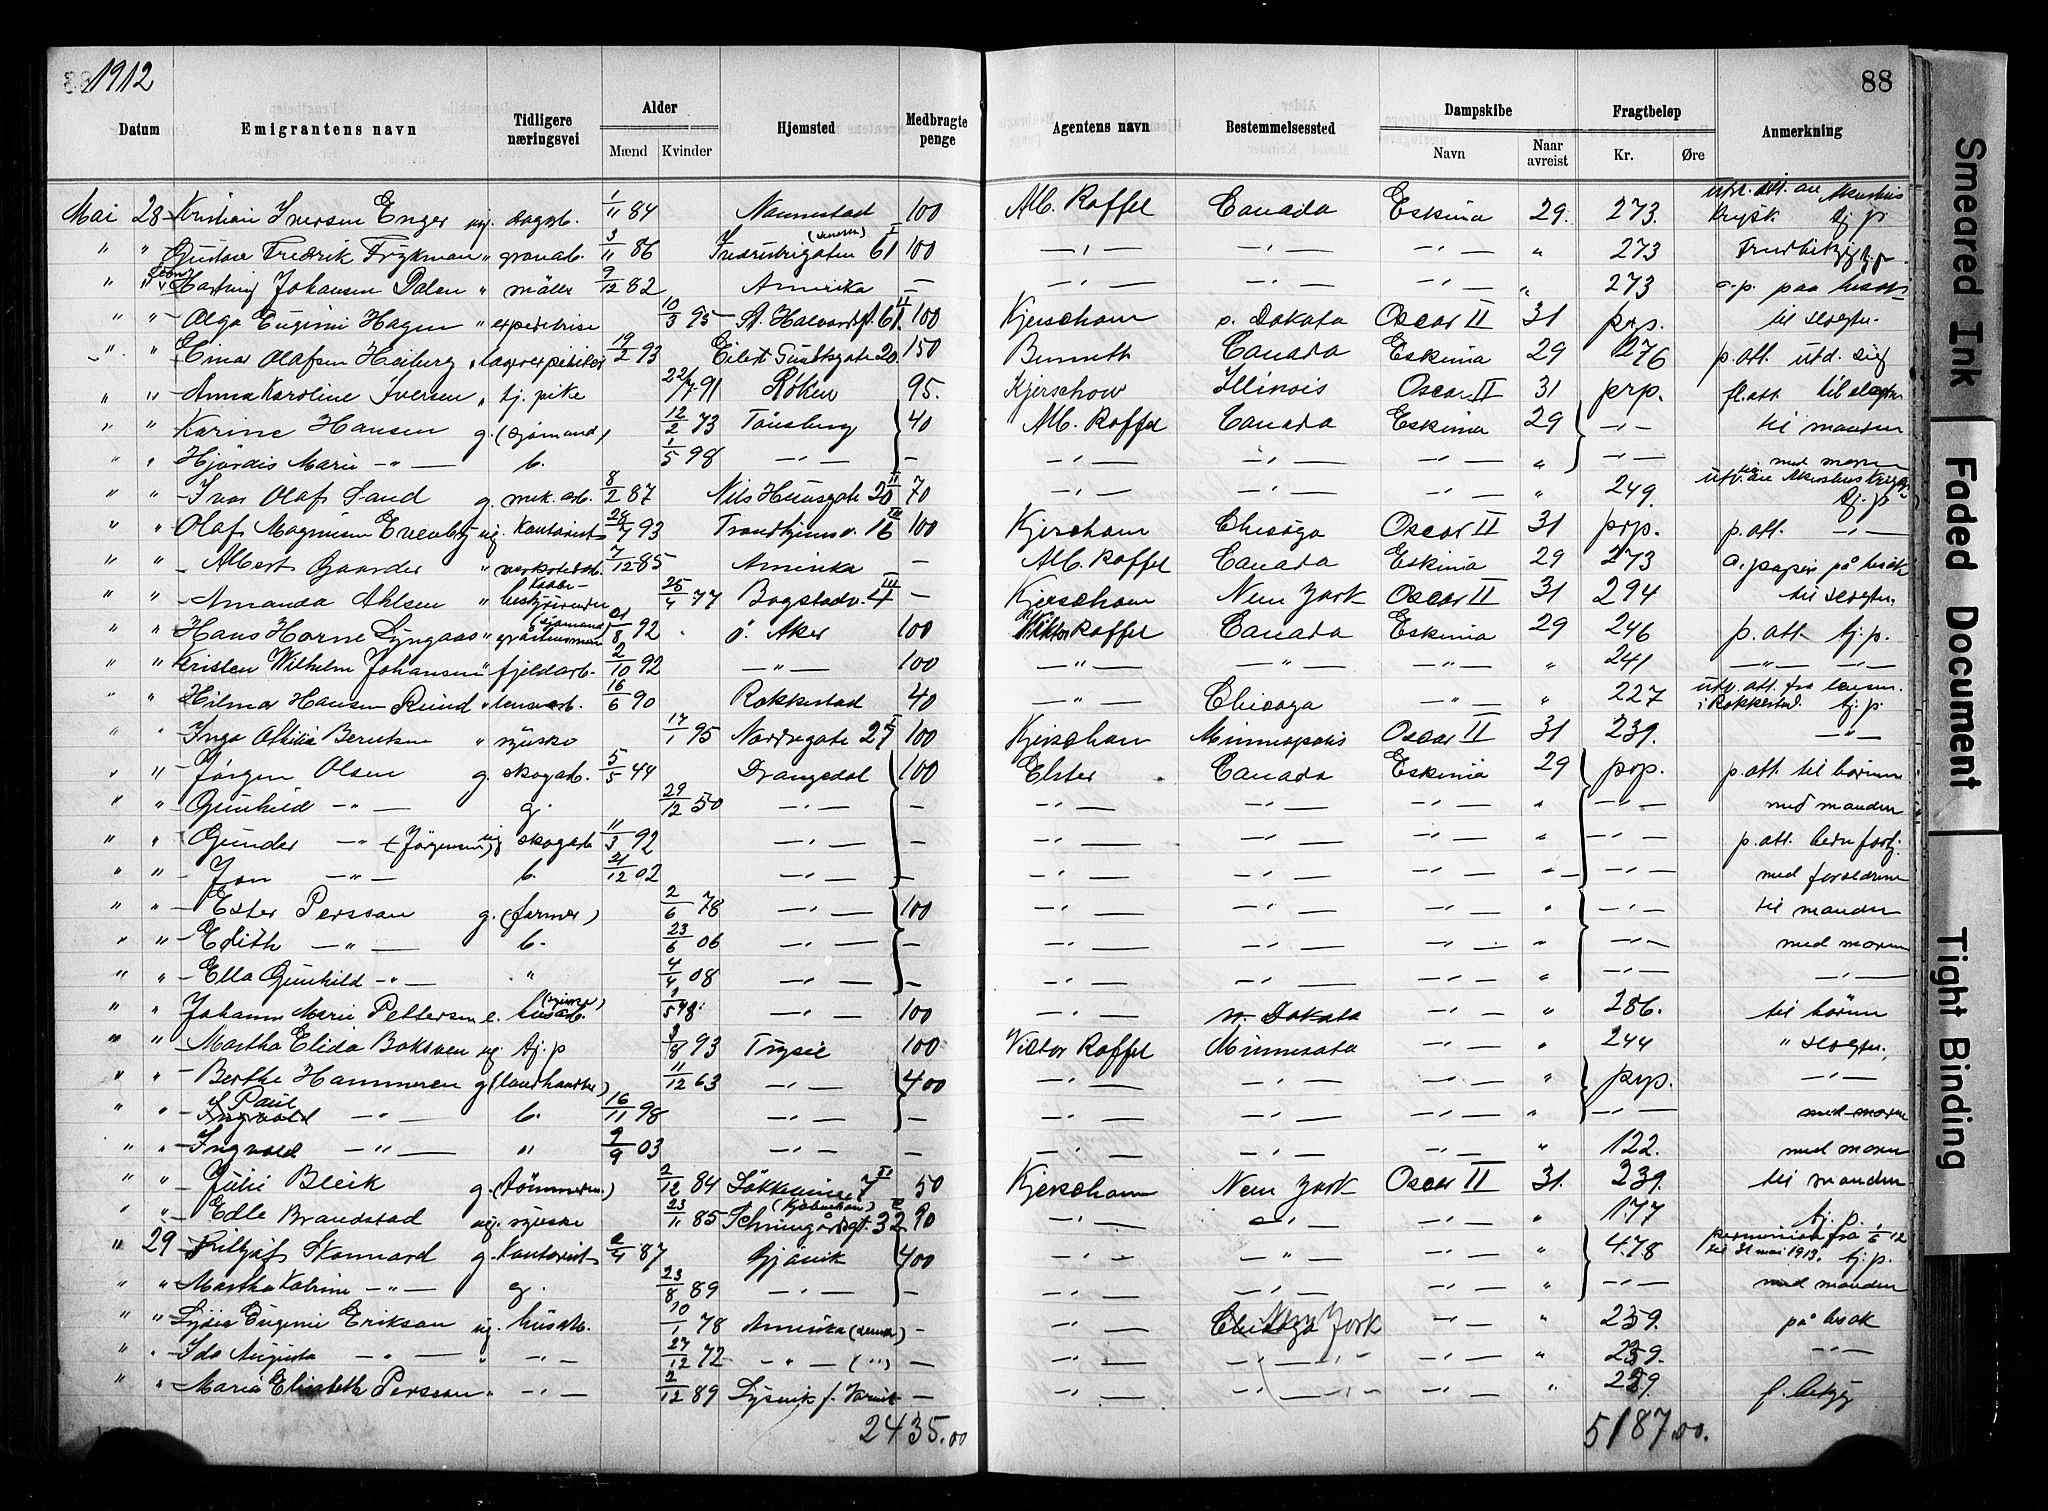 1912
88
Datum Emigrantens navn Tidligere næringsvei Alder Mænd Kvinder Hjemsted Medbragte penge Agentens navn Bestemmelsessted Dampskibe Navn Naar avreist Fragtbeløp Kr. Øre Anmerkning
Mai 28 Kristian Iversen Enger ug. dagarb. 1/11 84 Nannestad 100 Alb. Raffel Canada Eskina 29. 273. tj. p.
" " Gustav Fredrik Frykman " 3/11 86 61 100 —"— —"— —"— " 273
" " Hartvig Johansen Dalen " møller 9/12 82 Amerika — —"— —"— —"— " 273 paa besøk
" " Olga Eugenie Hagen " expeditrise 10/3 95 St. Halvardsgt. 61 II 100 Kjerschow s. Dakota Oscar II 31 prp. til slegtn.
" " Einar Olafsen Heiberg " lagerexpeditør 19/2 93 Eilert Sundtsgate 20. 150 Bennett Canada Eskina 29 276 p. att.
" " Anna Karoline Iversen " tj. pike 22/7 91 Røken 95. Kjerschow Illinois Oscar II 31 prp. fl. att. til slegtn.
" " Karine Hansen g. (sjømand) 12/2 73 Tönsberg 40 Alb. Raffel Canada Eskina 29 —"— til manden
" " Hjördis Marie —"— b. 1/5 98 —"— — —"— —"— —"— " —"— med moren
" " Ivar Olaf Sand g. mek. arb. 8/2 87 Nils Huusgate 20 II 70 —"— —"— —"— " 249. tj. p.
" " Olaf Magnusen Evenby ug. kontorist 93 Trondhjemsv. 16 III 100 Kjerschow Chicago Oscar II 31 prp. p. att. —"—
" " Albert Gaarder " verkstedarb. 7/12 85 Amerika — Alb. Raffel Canada Eskina 29 273 a. papir på besøk
" " Amanda Ahlsen " bestyrerinde 25/4 77 Bogstadv. 4 III — Kjerschow New York Oscar II 31 294 til slegtn.
" " Hans Horne Lyngaas " (sjømand) 8 92 ö. Aker 100 Viktor Raffel Canada Eskina 29 246 p. att. tj. p.
" " Kristen Wilhelm Johansen " fjeldarb. 2/10 92 —"— 100 —"— —"— —"— " 241 —"— —"—
" " Hilmar Hansen Rund " 16/6 90 Rakkestad 40 —"— Chicago —"— " 227 utv. att. fra lensm. i Rakkestad. tj. p.
" " Inga Othilie Berntsen " syerske 17/1 95 Nordregate 27 I 100 Kjerschow Minneapolis Oscar II 31 239. —"—
" " Jørgen Olsen g. skogarb. 5/5 44 Drangedal 100 Elster Canada Eskina 29 prp. p. att. til børnene
" " Gunhild —"— g. 29/12 50 —"— — —"— —"— —"— " —"— med manden
" " Gunder —"— (Jørgensen) ug. skogarb. 11/3 92 —"— — —"— —"— —"— " —"— p. att.
" " Jon —"— b. 21/12 02 —"— — —"— —"— —"— " —"— med foreldrene
" " Ester Persson g. (farmer) 2/6 78 —"— 100 —"— —"— —"— " —"— til manden
" " Edith —"— b. 23/6 06 —"— — —"— —"— —"— " —"— med moren
" " Ella Gunhild —"— " 4/4 08 —"— — —"— —"— —"— " —"— —"—
" " Johanne Marie Pettersen e. husarb. 1/5 48 —"— 100 —"— n. Dakota —"— " 286. til börnene
" " Martha Elida Baksven ug. tj. p 3/8 93 Trysil 100 Victor Raffel Minnesota —"— " 244 " slegtn.
" " Berthe Hammeren g. (landhandler) 11/12 63 —"— 400 —"— —"— —"— " prp. —"—
" " Paul —"— b. 16/11 98 —"— — —"— —"— —"— " —"— med moren
" " Ingvald —"— " 9/9 03 —"— — —"— —"— —"— " 122. med moren
" " Julie Bleik g. (tömmerm.) 2/12 84 Løkkeveien 7 50 Kjerschow New York Oscar II 31. 239. til manden
" " Edle Brandstad ug. syerske 23/11 85 (Kjøbenhavn) 32 90 —"— —"— —"— " 177 tj. p.
" 29 Fritjof Stannard g. kontorist 87 Gjøvik 400 —"— —"— —"— " 478 permission fra 1/6 12 til 31 mai 1913. tj. p.
" " Martha Katrine —"— g. 23/8 89 —"— — —"— —"— —"— " —"— med manden
" " Lydia Eugenie Eriksen ug. husarb. 10/1 78 Amerika — —"— Chicago New York —"— " 259. på besøk
" " Ida Augusta —"— " —"— 27/12 72 —"— (") — —"— —"— —"— " 259. —"—
" " Maria Elisabeth Persson " —"— 2/12 89 Lysvik — —"— —"— —"— " 259
2435.00
5187.00.
Smeared Ink
Faded Document
Tight Binding